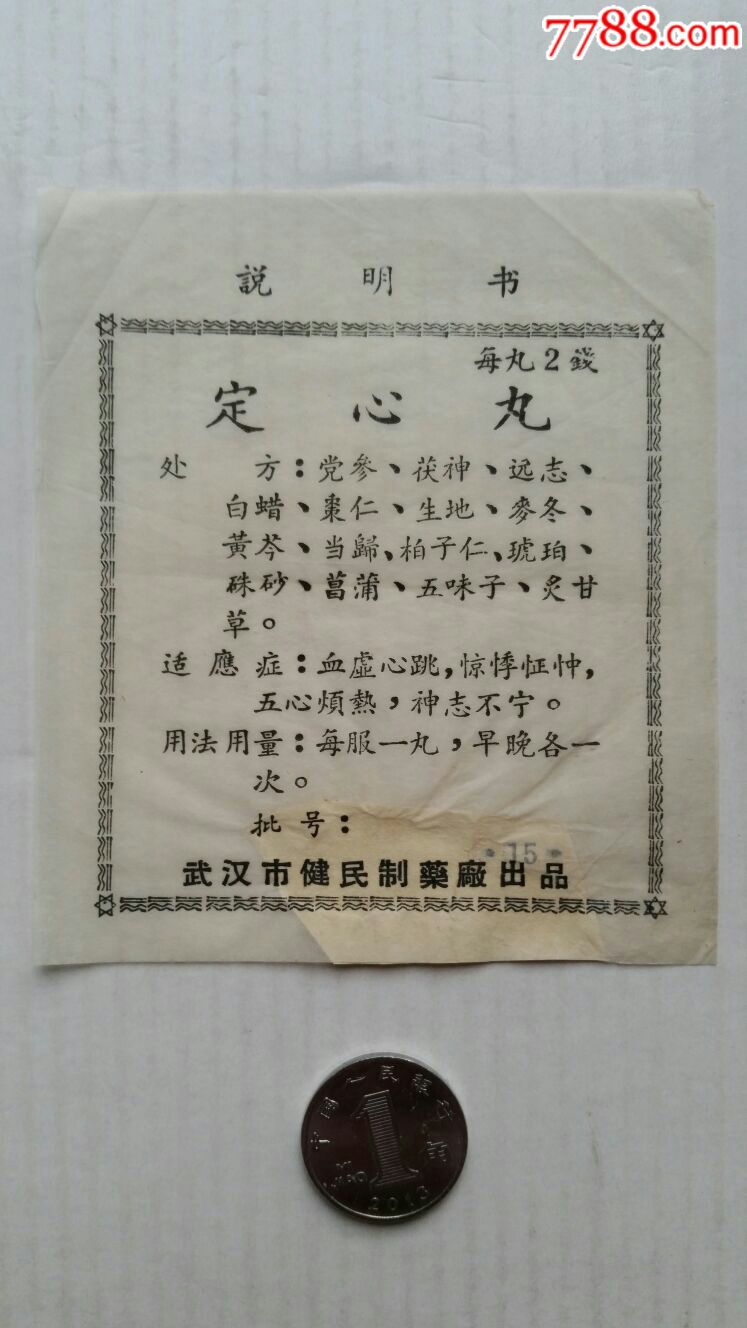 7788.com
説明书
每丸2錢
定心丸
处方：党參、茯神、远志、
白蜡、棗仁、生地、麥冬、
黃芩、当歸、柏子仁、琥珀、
硃砂、菖蒲、五味子、炙甘
草。
适應症：血虛心跳，惊悸怔忡，
五心煩熱，神志不宁。
用法用量：每服一丸，早晚各一
次。
批号：
·15·
武汉市健民制藥廠出品
中国人民银行
1
2013